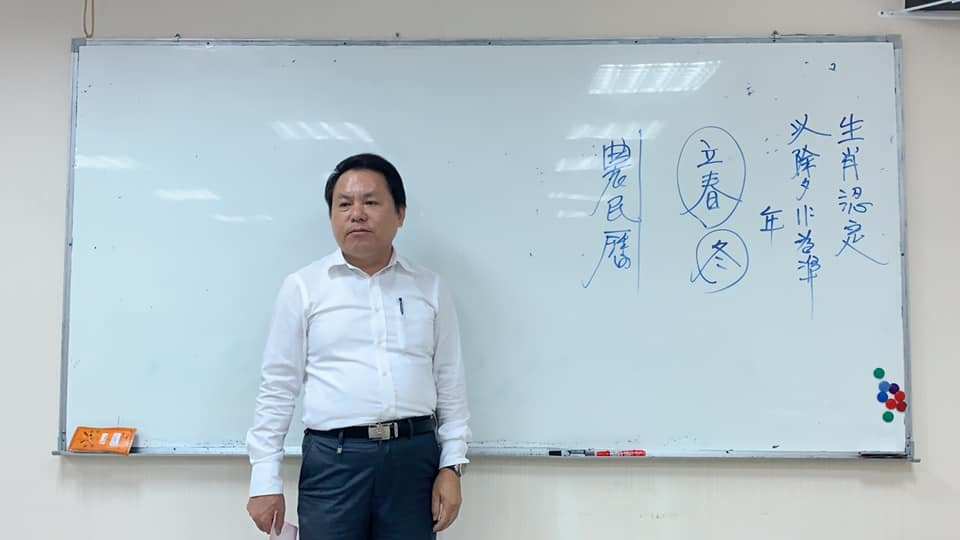 生肖認定
以除夕作為準
年
立春
冬
農民曆